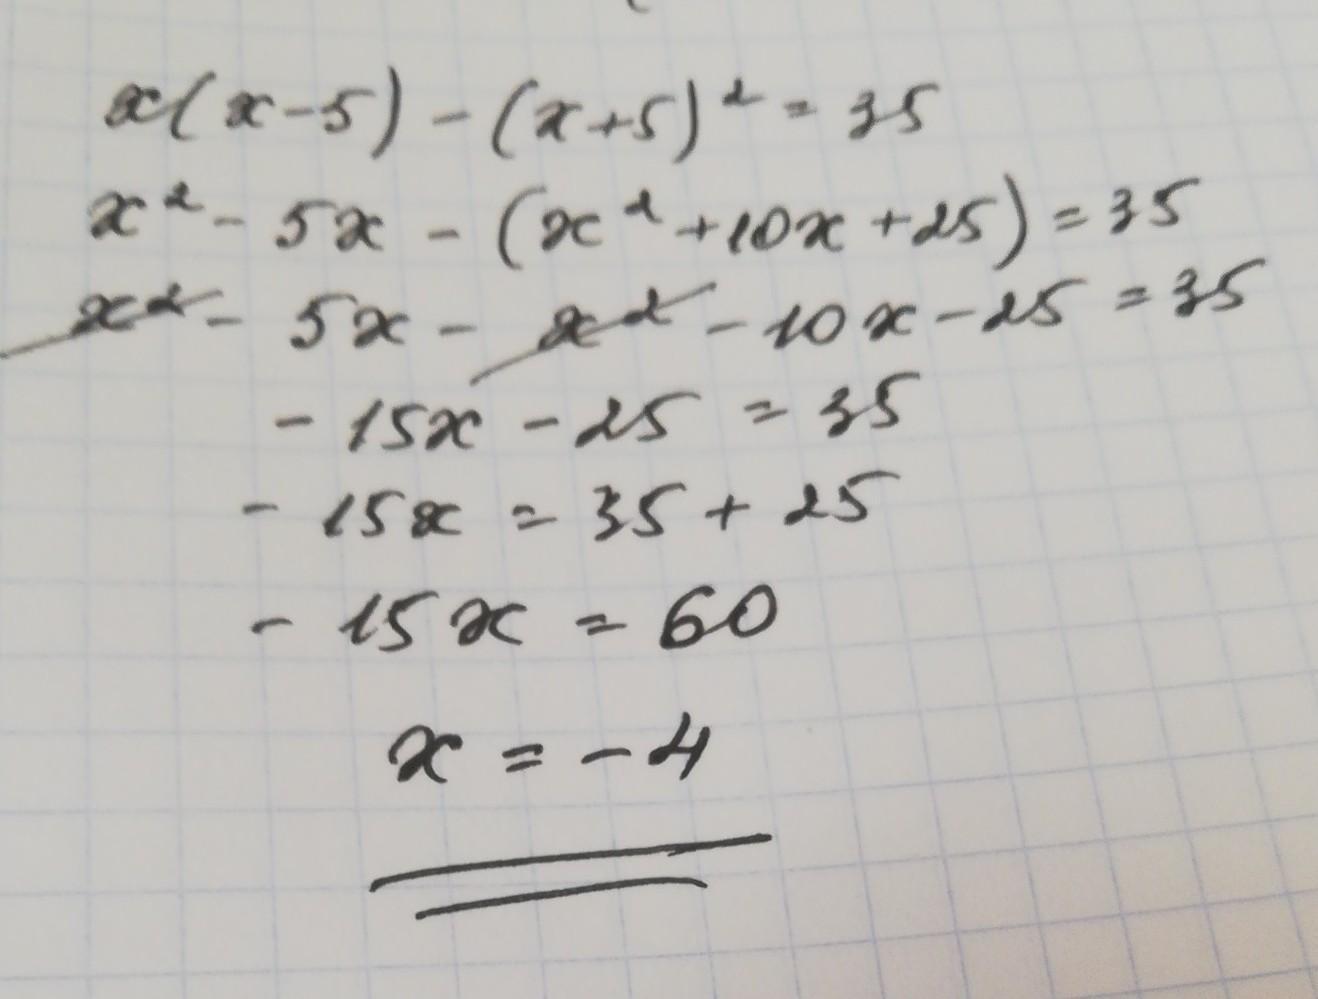 x(x-5) - (x+5)² = 35
x² - 5x - (x² + 10x + 25) = 35
x² - 5x - x² - 10x - 25 = 35
- 15x - 25 = 35
- 15x = 35 + 25
- 15x = 60
x = -4